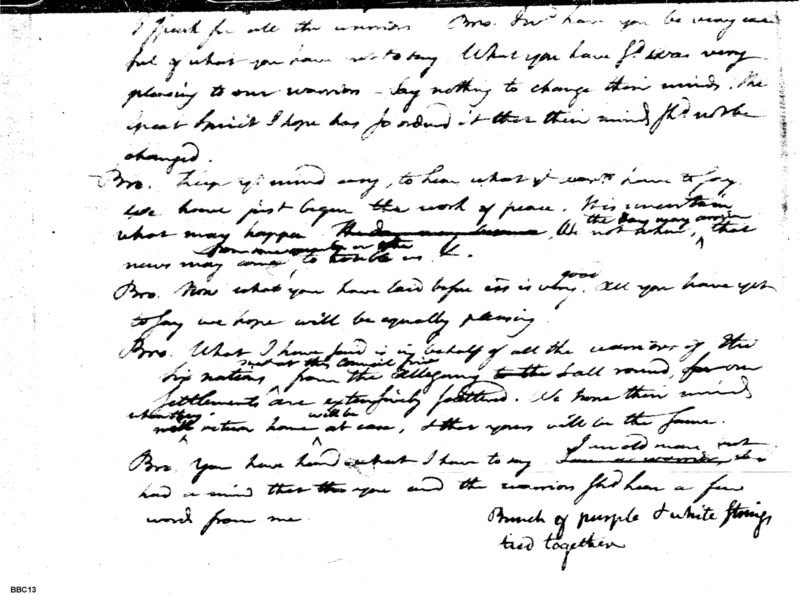 I speak for all the warriors Bro. I wd have you be very care
ful of what you have yet to say What you have sd was very
pleasing to our warriors - Say nothing to change their minds. The
Great Spirit I hope has so ordered it that their minds shd not be
changed.
Bro. Keep yr mind easy, to hear what yr warrs have to say.
We have just begun the work of peace. It is uncertain
the day may arrive
what may happen. The day may , We not when, that
some one or other
news may come, to trouble us &.
good
Bro. Now what you have laid before us is very. All you have yet
to say we hope will be equally pleasing.
Bro. What I have said is in behalf of all the warriors of the
not at this Council fire
Six nations from the Allegany to the & all round, for our
settlements are extensively scattered. We hope their minds
when they will be
will return home at ease, & that yours will be the same.
I an old man, not
Bro. You have heard what I have to say I am a warrior,
had a mind that this you and the warriors shd hear a few
words from me.
Bunch of purple & white strings
tied together
BBC13